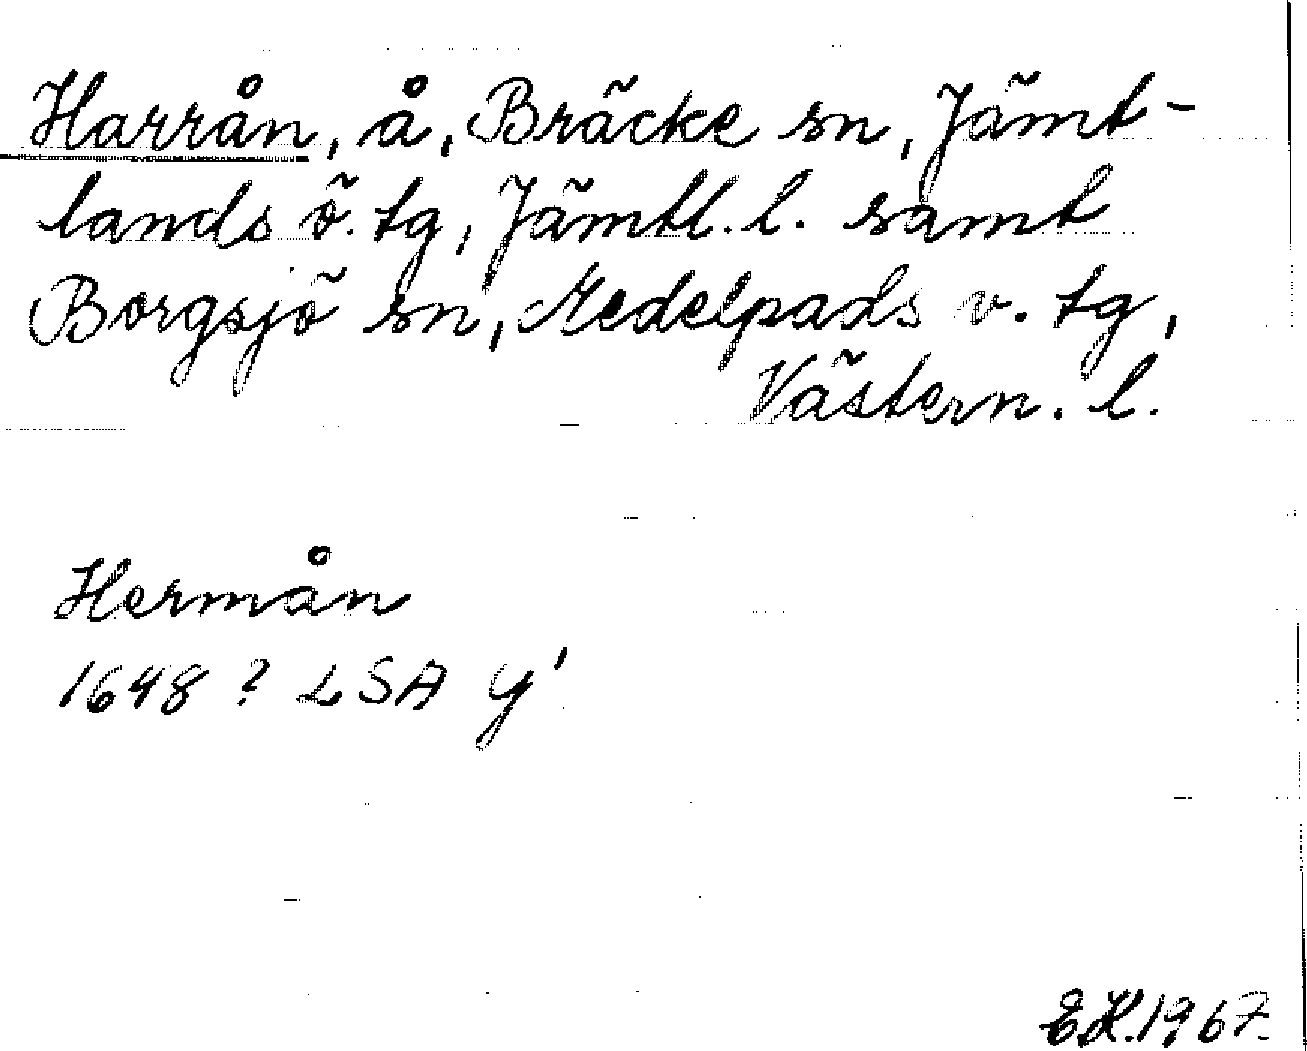 Harrån, å, Bräcke sn, Jämt-
lands ö. tg, Jämtl. l. samt
Borgsjö sn, Medelpads v. tg,
Västern. l.
Hermån
1648 ? LSA Y'
E.H. 1967.